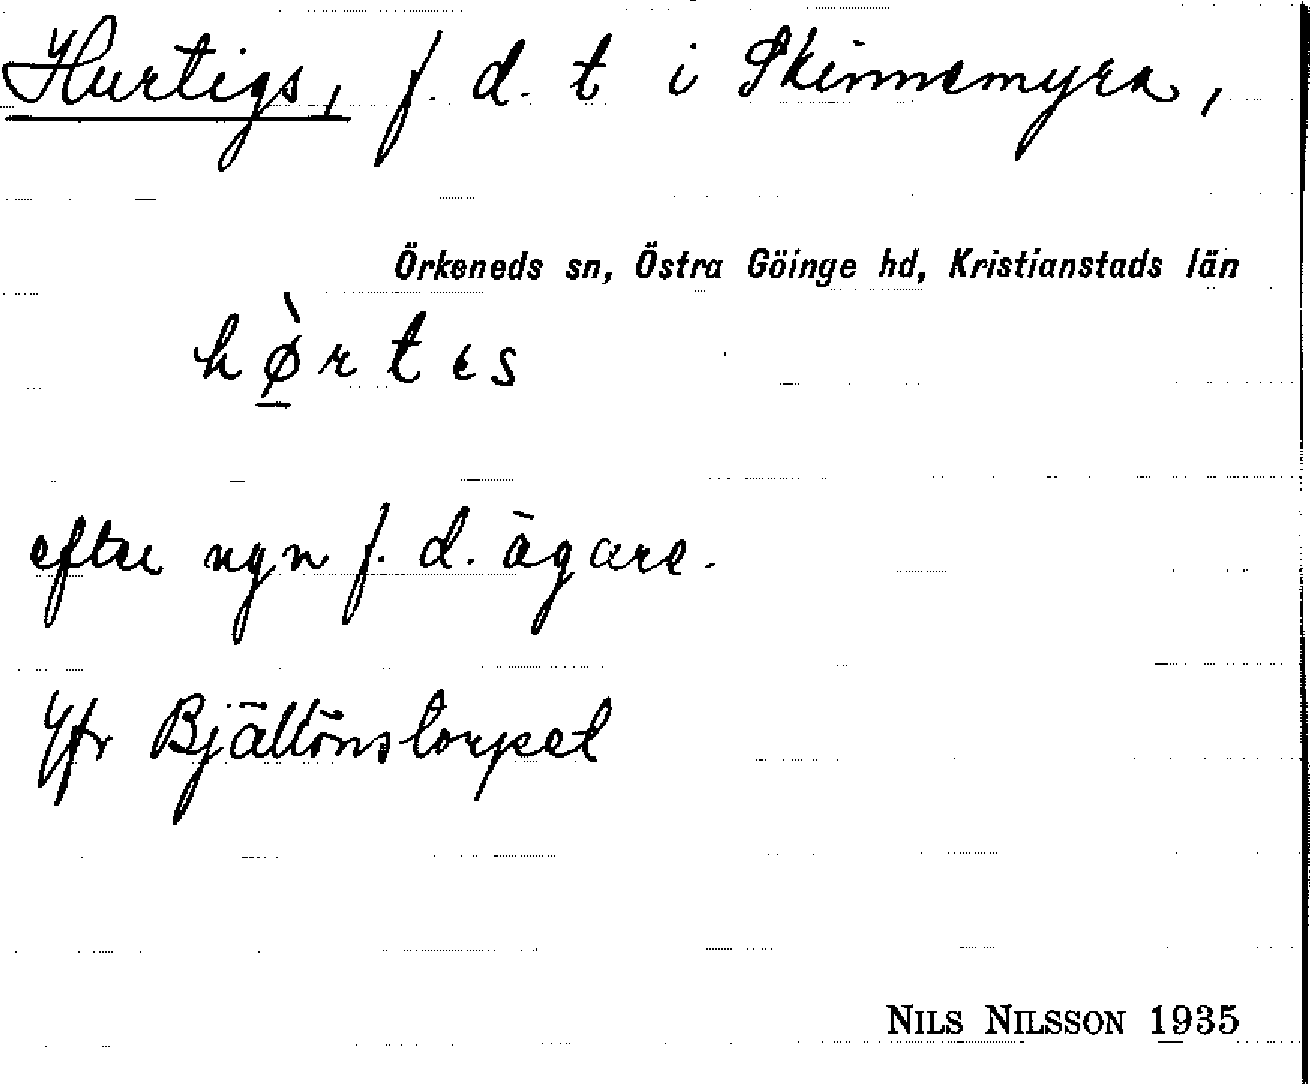 Hurtigs, f. d. t i Skinnemyra,
Örkeneds sn, Östra Göinge hd, Kristianstads län
hø̠̀rtes
efter ngn f. d. ägare.
Jfr Bjällönstorpet
NILS NILSSON 1935